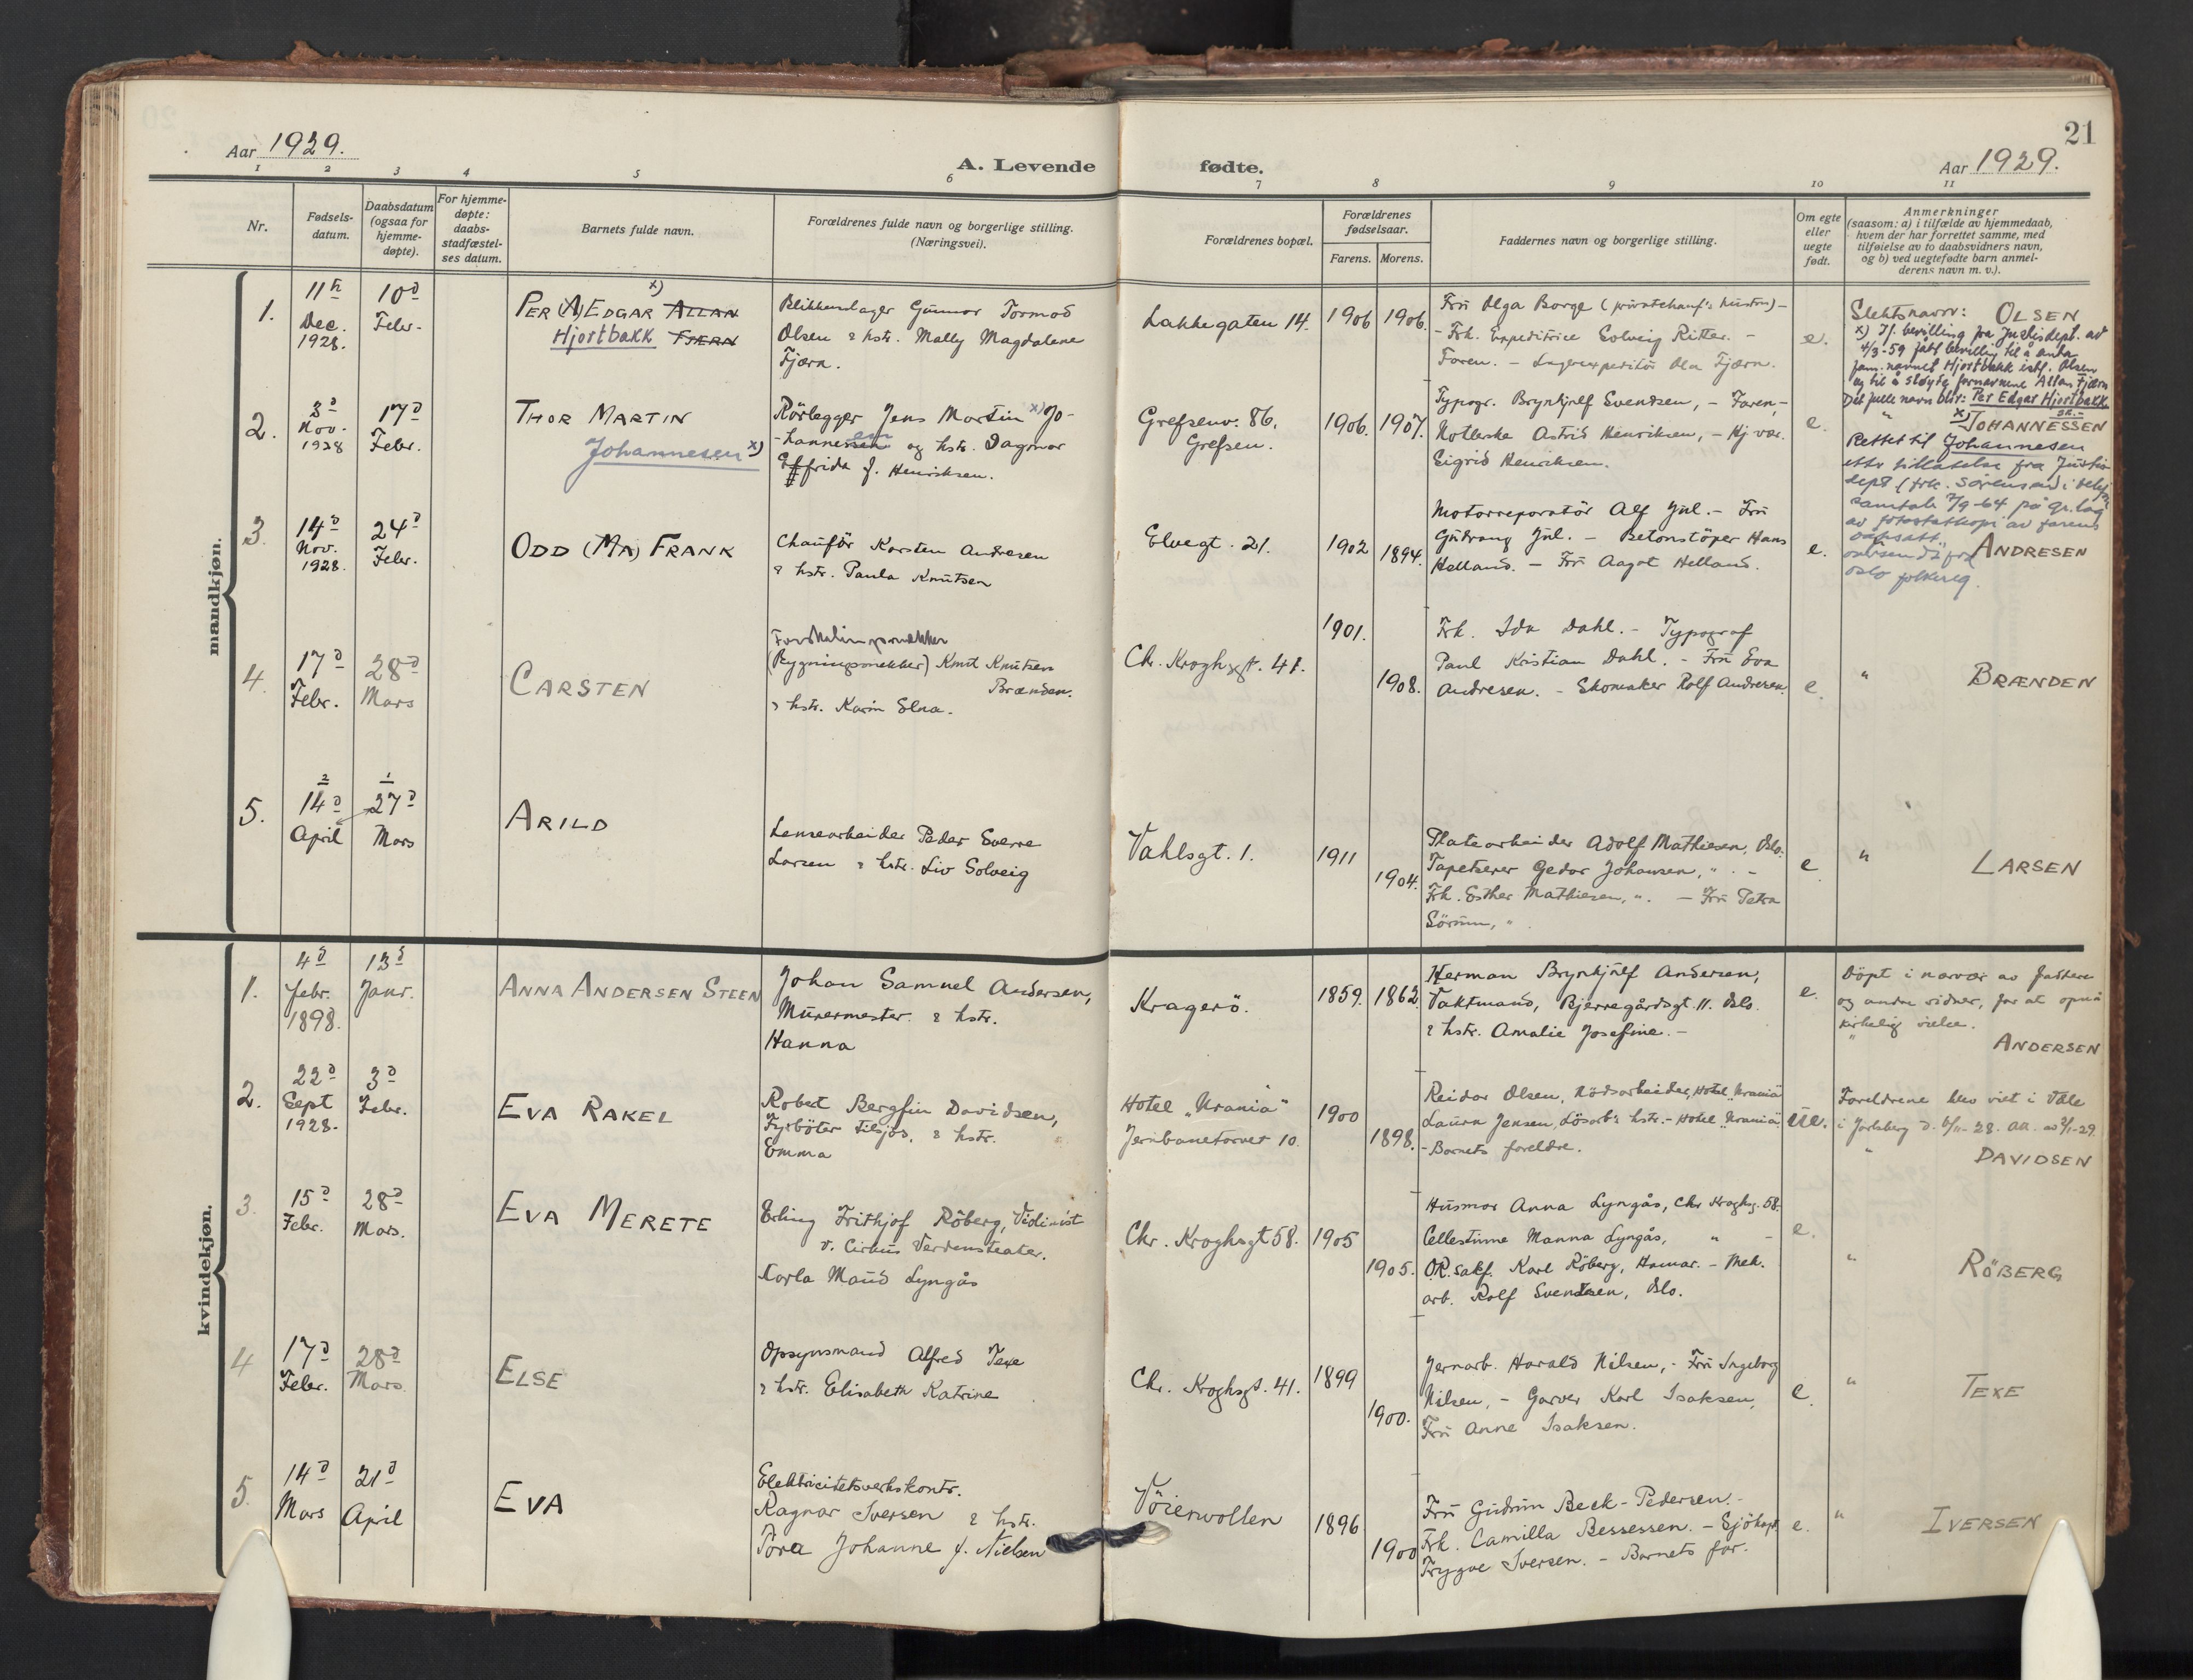 21
Aar 1929.
A. Levende fødte.
Aar 1929.
1 2 3 4 5 6 7 8 9 10 11
Nr.
Fødsels-
datum.
Daabsdatum
(ogsaa for
hjemme-
døpte).
For hjemme-
døpte:
daabs-
stadfæstel-
ses datum.
Barnets fulde navn.
Forældrenes fulde navn og borgerlige stilling.
(Næringsvei).
Forældrenes bopæl.
Forældrenes
fødselsaar.
Farens. Morens.
Faddernes navn og borgerlige stilling.
Om egte
eller
uegte
født.
Anmerkninger
(saasom: a) i tilfælde av hjemmedaab,
hvem der har forrettet samme, med
tilføielse av to daabsvidners navn,
og b) ved uegtefødte barn anmel-
derens navn m. v.).
mandkjøn.
1.
11te
Dec.
1928.
10d
Febr.
x)
PER (A) EDGAR ALLAN
Hjortbakk FJÆRN
Blikkenslager Gunnar Tormod
Olsen & hstr. Mally Magdalene
Fjærn.
Lakkegaten 14.
1906 1906.
Fru Olga Borge (privatchauf's hustru) -
- Frk. Expeditrice Solveig Ritter. -
Faren. - Lagerexpeditör Ola Fjærn.
e.
Slektsnavn: OLSEN
x) Jf. bevilling fra Justisdept. av
4/3-59 fått bevilling til å anta
fam.navnet Hjortbakk istf. Olsen
og til å sløyfe fornavnene Allan Fjærn
Det fulle navn blir: Per Edgar Hjortbakk
2.
3d
Nov.
1928
17d
Febr.
THOR MARTIN
Johannesen x)
Rörlegger Jens Martin x) Jo-
-hannessen og hstr. Dagmar
Effrida f. Henriksen.
Grefsenv. 86.
Grefsen.
1906. 1907.
Typogr. Brynhjulf Svendsen, - Faren, -
Astrid Henriksen, - Hj. vær.
Sigrid Henriksen.
e.
" x) JOHANNESSEN
Rettet til Johannesen
etter tillatelse fra Justis-
dept (frk. Sørensen) i telef.
samtale 7/9-64 på gr.lag
av fotostatkopi av farens
dåpsatt.,
oversendt fra
Oslo folkereg.
3.
14d
Nov.
1928.
24d
Febr.
ODD (MA) FRANK
Chaufför Karsten Andresen
& hstr. Paula Knutsen
Elvegt. 21.
1902 1894.
Motorreparatör Alf Jul. - Fru
Gudrang Jul. - Betonstöper Hans
Helland. - Fru Aagot Helland.
e.
ANDRESEN
4.
17d
Febr.
28d
Mars
CARSTEN
Forskalingssnekker
(Bygningssnekker) Knut Knutsen
Brænden.
& hstr. Karin Elna.
Chr. Kroghsgt. 41.
1901.
1908.
Frk. Ida Dahl. - Typograf
Paul Kristian Dahl. - Fru Eva
Andresen. - Skomaker Rolf Andresen.
e.
" BRÆNDEN
5.
2
14d
April
1
27d
Mars
ARILD
Lensearbeider Peder Sverre
Larsen & hstr. Liv Solveig
Vahlsgt. 1.
1911
1904.
Platearbeider Adolf Mathiesen, Oslo.
Tapetserer Gedor Johansen, " . -
Frk. Esther Mathiesen, ". - Fru Petra
Sörum, "
e.
" LARSEN
kvindekjøn.
1.
4d
Febr.
1898.
13d
Janr.
ANNA ANDERSEN STEEN
Johan Samuel Andersen,
Murermester & hstr.
Hanna
Kragerö.
1859. 1862
Herman Brynhjulf Andersen,
Vaktmand, Bjerregårdsgt. 11. Oslo.
& hstr. Amalie Josefine. -
e.
Döpt i nærvær av faddere
og andre vidner, for at opnå
kirkelig vielse.
" ANDERSEN
2.
22d
Sept
1928.
3d
Febr.
EVA RAKEL
Robert Bergfin Davidsen,
Fyrböter tilsjös, & hstr.
Emma
Hotel „Urania"
Jernbanetorvet 10.
1900
1898.
Reidar Olsen, Nödsarbeider, Hotel „Urania"
Laura Jensen, Lösarb's hstr. - Hotel „Urania"
- Barnets foreldre.
ue.
Foreldrene blev viet i Våle
i Jarlsberg d. 6/11-28. Att. av 3/1-29.
" DAVIDSEN
3.
15d
Febr.
28d
Mars.
EVA MERETE
Erling Frithjof Röberg, Violinist
v. Cirkus Verdensteater.
Karla Maud Lyngås
Chr. Kroghsgt 58.
1905
1905.
Husmor Anna Lyngås, Chr Kroghsg. 58.
Cellestinne Manna Lyngås, " -
O.R.sakf. Karl Röberg, Hamar. - Mek.
arb. Rolf Svendsen, Oslo.
e.
" RÖBERG
4
17d
Febr.
28d
Mars.
ELSE
Opsynsmand Alfred Texe
& hstr. Elisabeth Katrine
Chr. Kroghsgt. 41.
1899
1900.
Jernarb. Harald Nilsen, - Fru Ingeborg
Nilsen, - Garver Karl Isaksen,
Fru Anne Isaksen.
e.
" TEXE
5.
14d
Mars
21d
April
EVA
Elektricitetsverkskontr.
Ragnar Iversen & hstr.
Tora Johanne f. Nielsen
Vöienvollen
1896
1900
Fru Gudrun Beck-Pedersen. -
Frk. Camilla Bessessen. - Sjökapt.
Trygve Iversen. - Barnets far.
e.
" IVERSEN